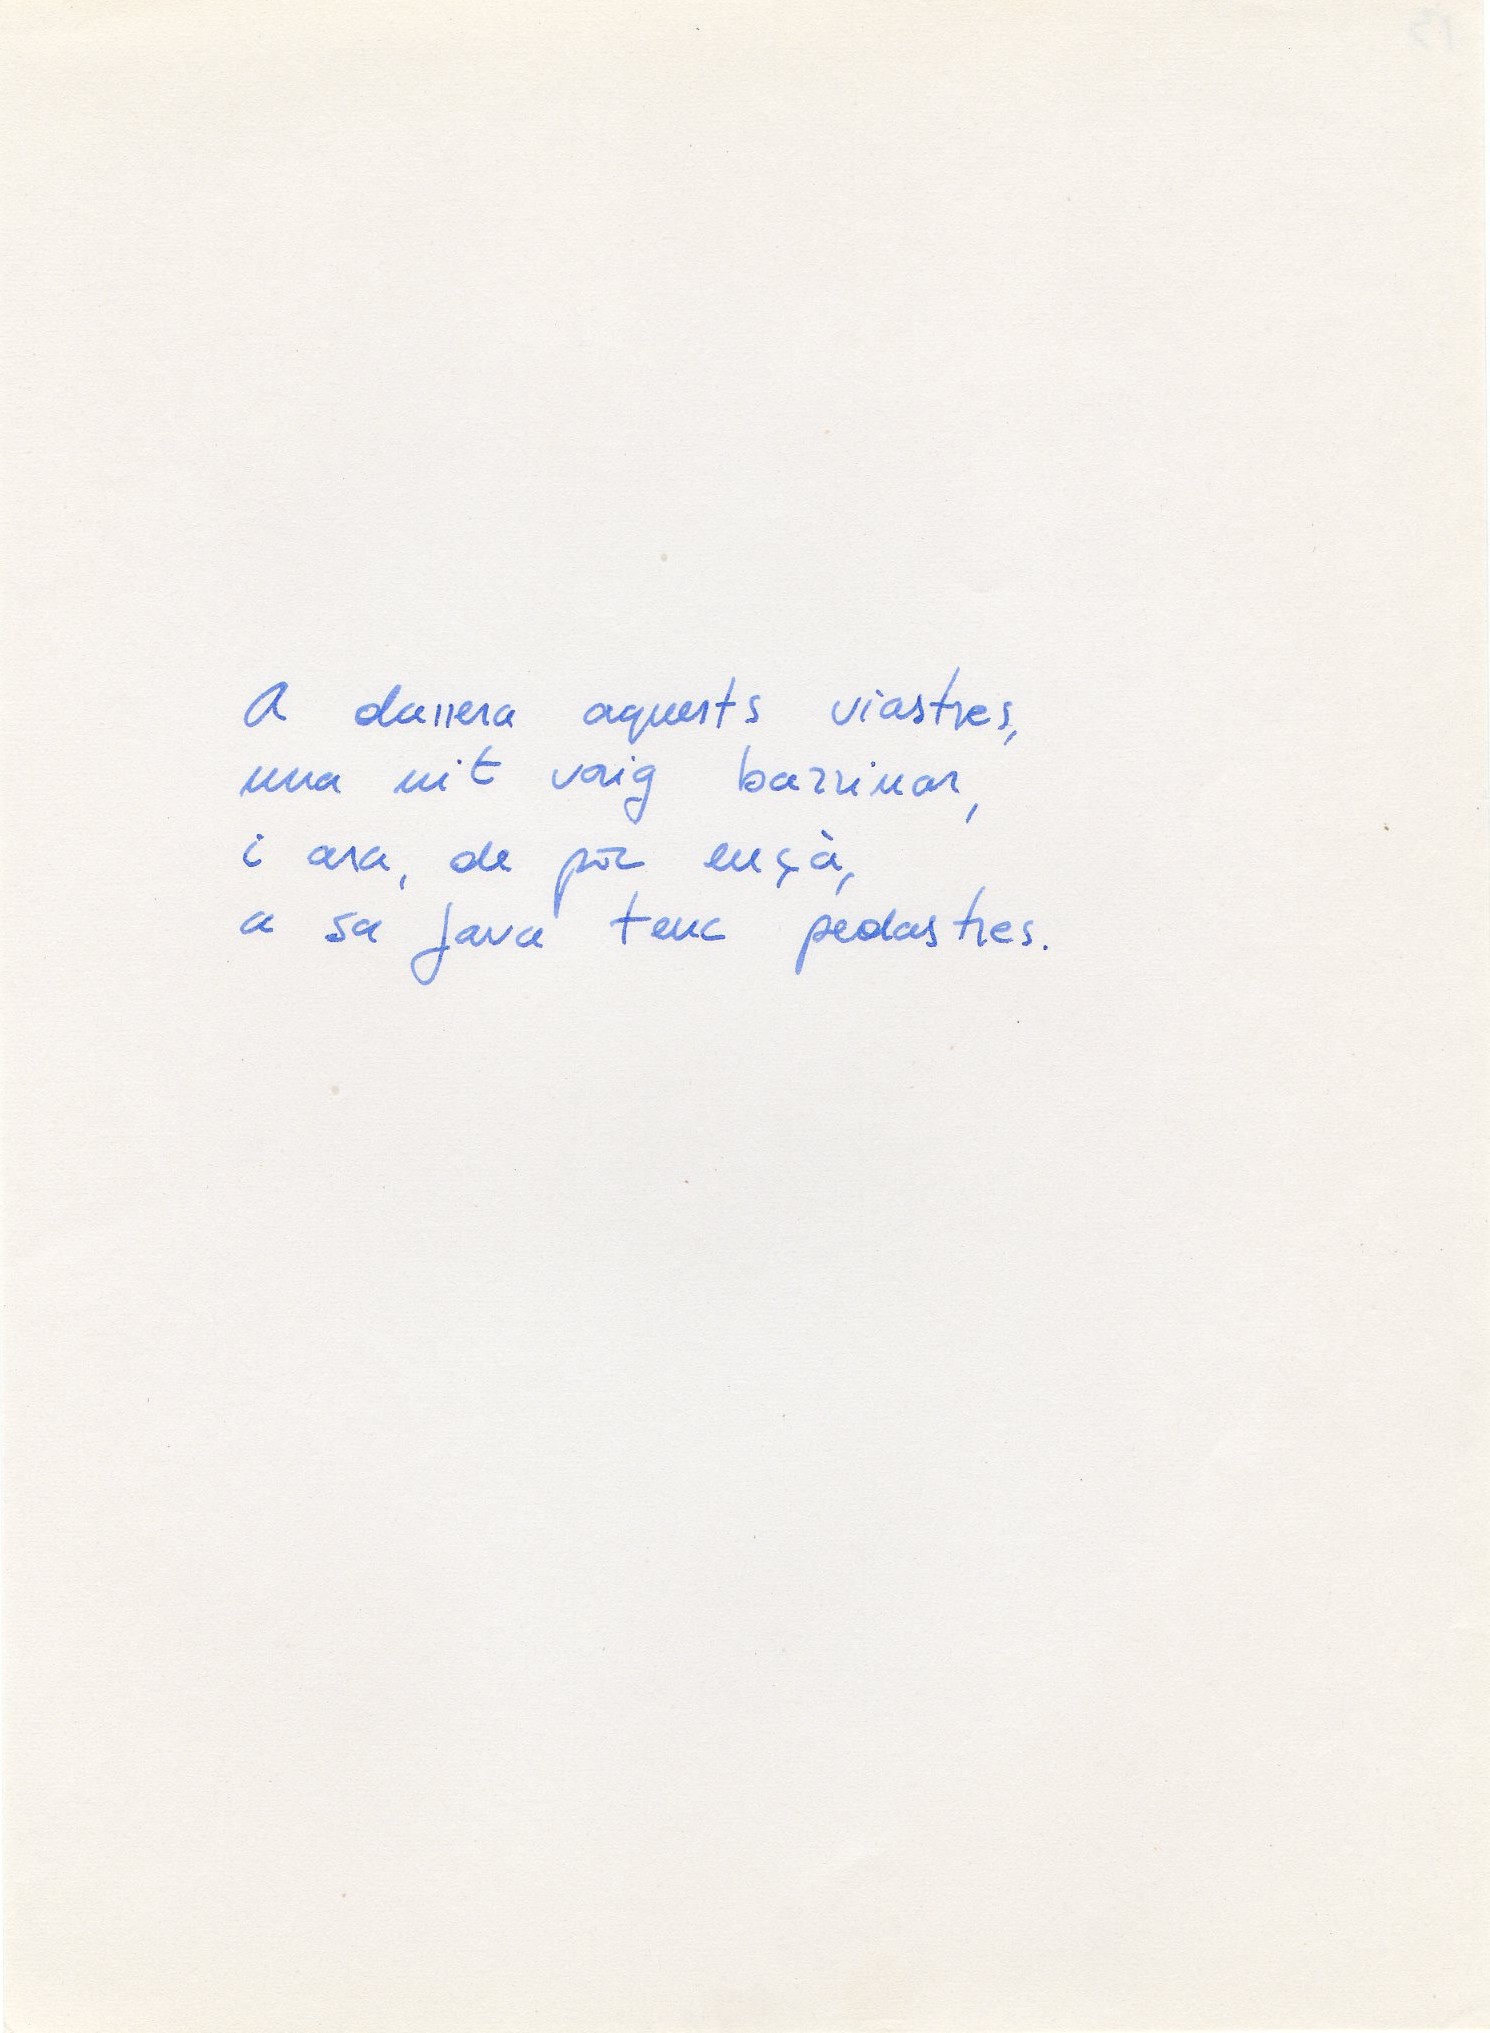 A darrera aquests viastres,
una nit vaig barrinar,
i ara, de poc ençà,
a sa java tenc pedastres.